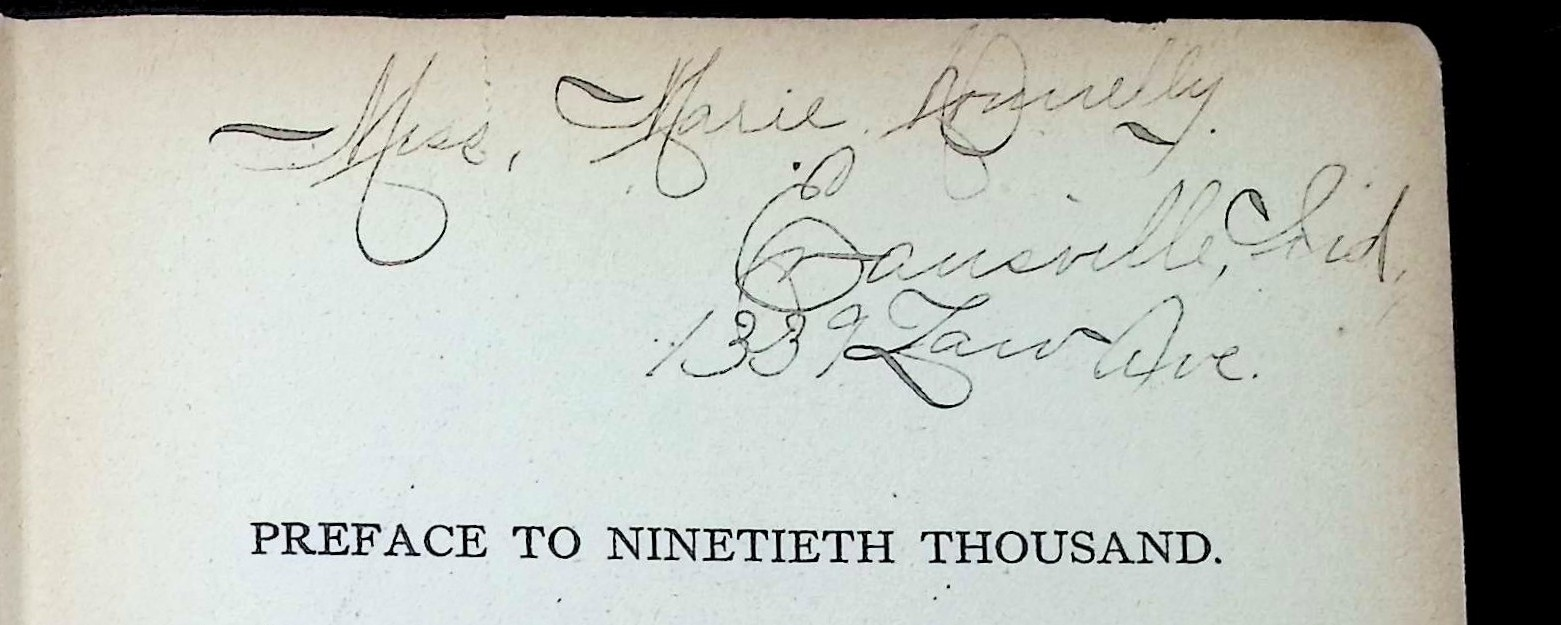 Miss, Marie Donnelly.
Evansville, Ind,
1339 Law Ave.
PREFACE TO NINETIETH THOUSAND.